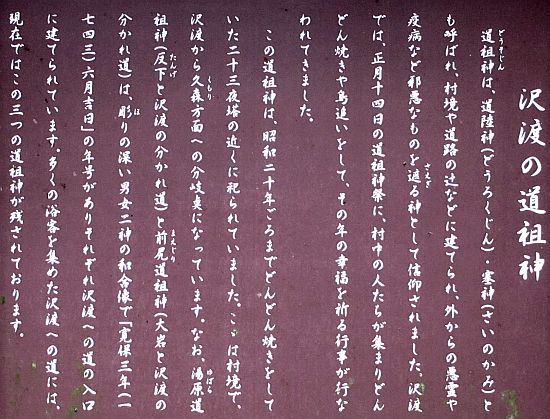 沢渡の道祖神
道祖神は、道陸神(どうろくじん)・塞神(さいのかみ)と
も呼ばれ、村境や道路の辻などに建てられ、外からの悪霊や
疫病など邪悪なものを遮る神として信仰されました。沢渡
では、正月十四日の道祖神祭に、村中の人たちが集まりどん
どん焼きや鳥追いをして、その年の幸福を祈る行事が行な
われてきました。
この道祖神は、昭和二十年ごろまでどんどん焼きをして
いた二十三夜塔の近くに祀られていました。ここは村境で、
沢渡から久森方面への分岐点になっています。なお、湯原道
祖神(反下と沢渡の分かれ道)と前尻道祖神(大岩と沢渡の
分かれ道)は、彫りの深い男女二神の和合像で「寛保三年(一
七四三)六月吉日」の年号がありそれぞれ沢渡への道の入口
に建てられています。多くの浴客を集めた沢渡への道には、
現在ではこの三つの道祖神が残されております。